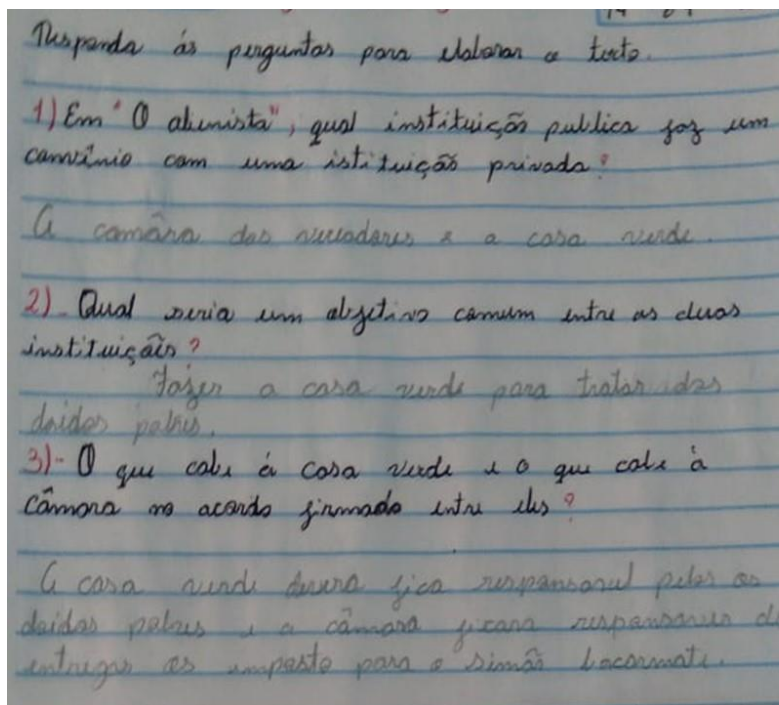 Responda ás perguntas para elaborar o texto.
1) Em "O alienista", qual instituição publica faz um
convînio com uma istituição privada?
A camâra dos vereadores e a casa verde.
2)- Qual seria um objetivo comum entre as duas
instituiçãis?
Fazer a casa verde para tratar das
doidos pobres.
3)- O que cabe á Casa Verde e o que cabe à
Câmara no acordo firmado entre eles?
A casa verde devera fica responsavel pelos os
doidos pobres e a câmara ficara responsaveis
entregar os imposto para o simão bacarmati.